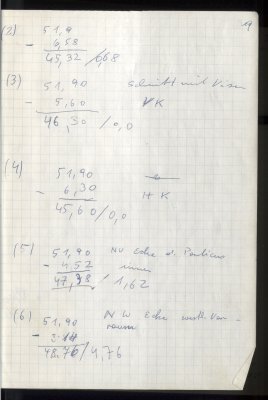 19
(2) 51,9
- 6,58
45,32 / 6,68
(3) 51,90 schnitt mit
- 5,60 VK
46,30 / 0,0
(4) 51,90
- 6,30 HK
45,60 / 0,0
(5) 51,90 NW Ecke d. Porticus
- 4,52 innen
47,38 / 1,62
(6) 51,90 NW Ecke westl. Vor-
- 3,14 raum
48,76 / 4,76